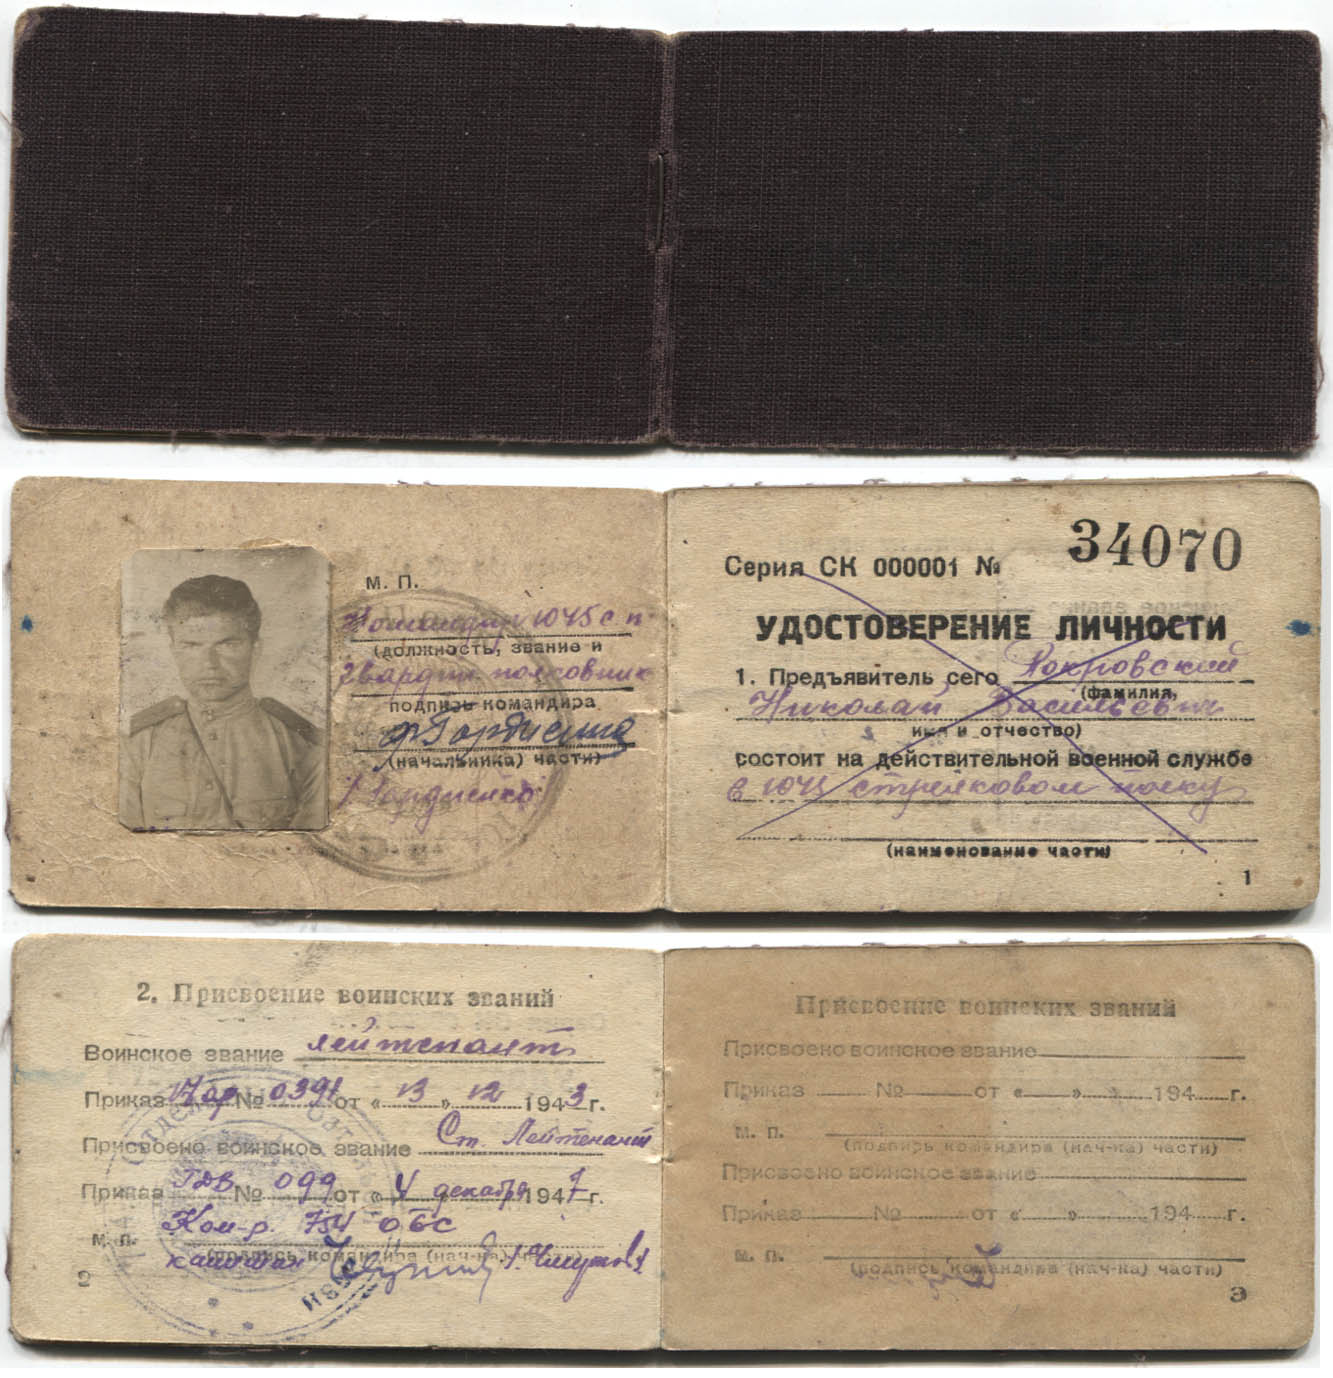 М. П.
Командир 1045 с. п.
(должность, звание и
Гвардии полковник
подпись командира
(начальника) части)
/Гордиенко/
Серия СК 000001 № 34070
УДОСТОВЕРЕНИЕ ЛИЧНОСТИ
1. Предъявитель сего Покровский
(фамилия,
Николай Васильевич
имя и отчество)
состоит на действительной военной службе
в 1045 стрелковом полку
(наименование части)
1
2. Присвоение воинских званий
Воинское звание лейтенант
Приказ № 0391 от « 13 » 12 1943 г.
Присвоено воинское звание Ст. Лейтенант
Приказ № 099 от « 4 » декабря 1947 г.
Ком-р. 754 ОБС
М. П. (подпись командира (нач-ка) части)
капитан
2
Присвоение воинских званий
Присвоено воинское звание
Приказ № от « » 194 г.
М. П.
(подпись командира (нач-ка) части)
Присвоено воинское звание
Приказ № от « » 194 г.
М. П.
(подпись командира (нач-ка) части)
3